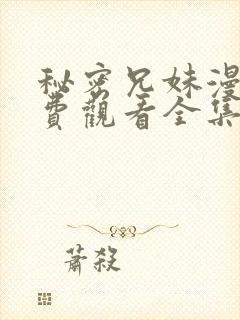 秘密兄妹漫
費觀看全集
蕭殺